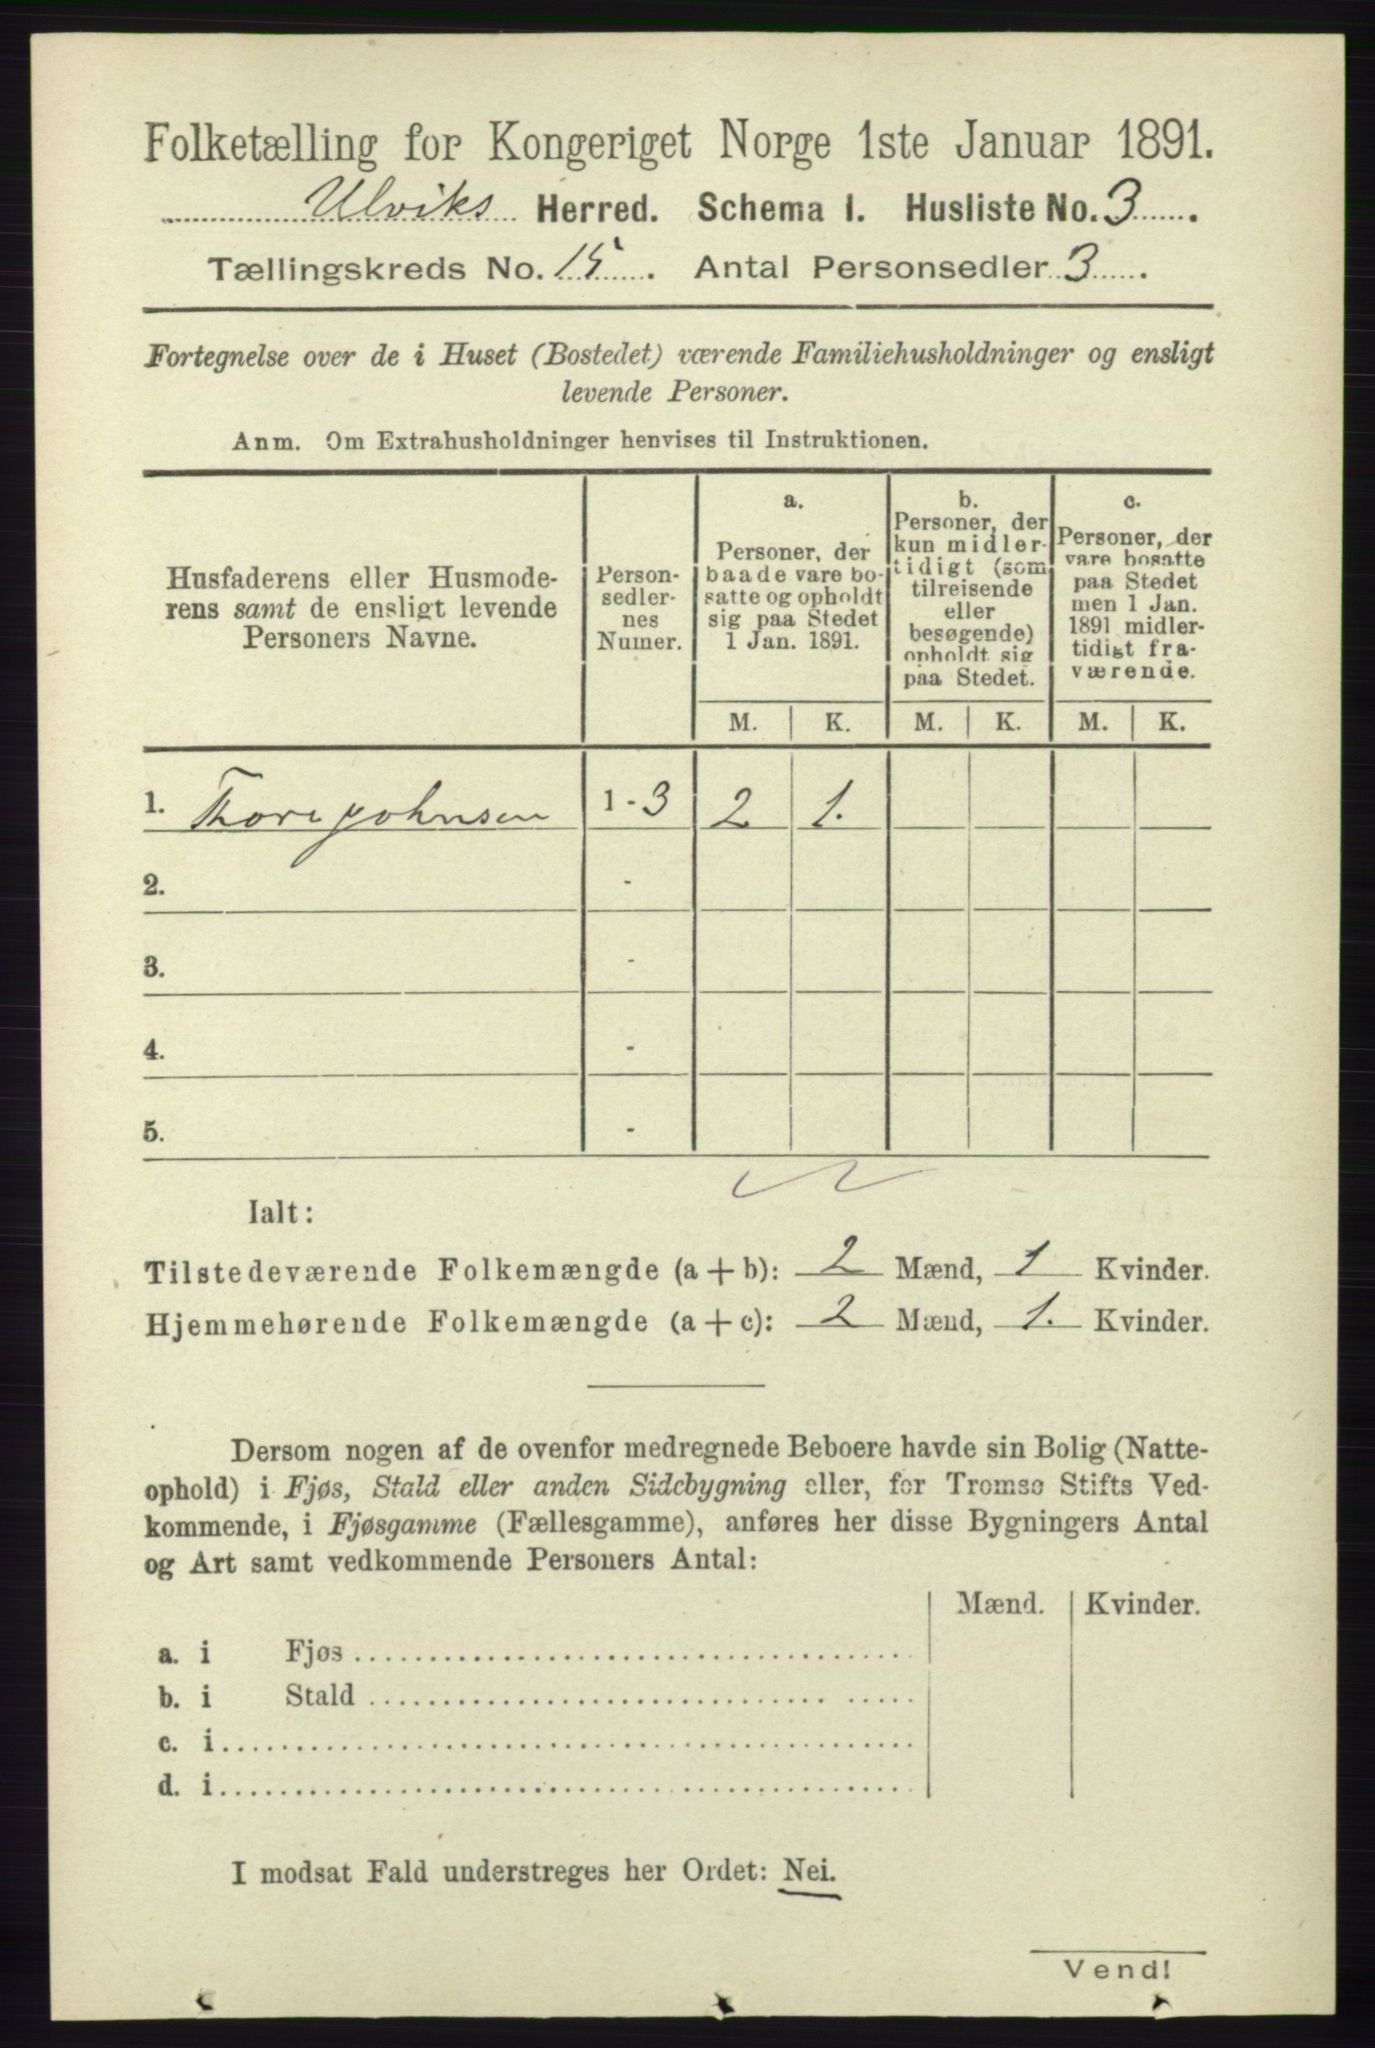 Folketælling for Kongeriget Norge 1ste Januar 1891.
Ulviks Herred. Schema I. Husliste No. 3.
Tællingskreds No. 15. Antal Personsedler 3.
Fortegnelse over de i Huset (Bostedet) værende Familiehusholdninger og ensligt
levende Personer.
Anm. Om Extrahusholdninger henvises til Instruktionen.
Husfaderens eller Husmode-
rens samt de ensligt levende
Personers Navne.
Person-
sedler-
nes
Numer.
a.
Personer, der
baade vare bo-
satte og opholdt
sig paa Stedet
1 Jan. 1891.
b.
Personer, der
kun midler-
tidigt (som
tilreisende
eller
besøgende)
opholdt sig
paa Stedet.
c.
Personer, der
vare bosatte
paa Stedet
men 1 Jan.
1891 midler-
tidigt fra-
værende.
M. K. M. K. M. K.
1. Thore Johnsen 1 - 3 2 1.
2. -
3. -
4. -
5. -
Ialt:
Tilstedeværende Folkemængde (a + b): 2 Mænd, 1 Kvinder.
Hjemmehørende Folkemængde (a + c): 2 Mænd, 1. Kvinder.
Dersom nogen af de ovenfor medregnede Beboere havde sin Bolig (Natte-
ophold) i Fjøs, Stald eller anden Sidebygning eller, for Tromsø Stifts Ved-
kommende, i Fjøsgamme (Fællesgamme), anføres her disse Bygningers Antal
og Art samt vedkommende Personers Antal:
Mænd. Kvinder.
a. i Fjøs
b. i Stald
c. i
d. i
I modsat Fald understreges her Ordet: Nei.
Vend!